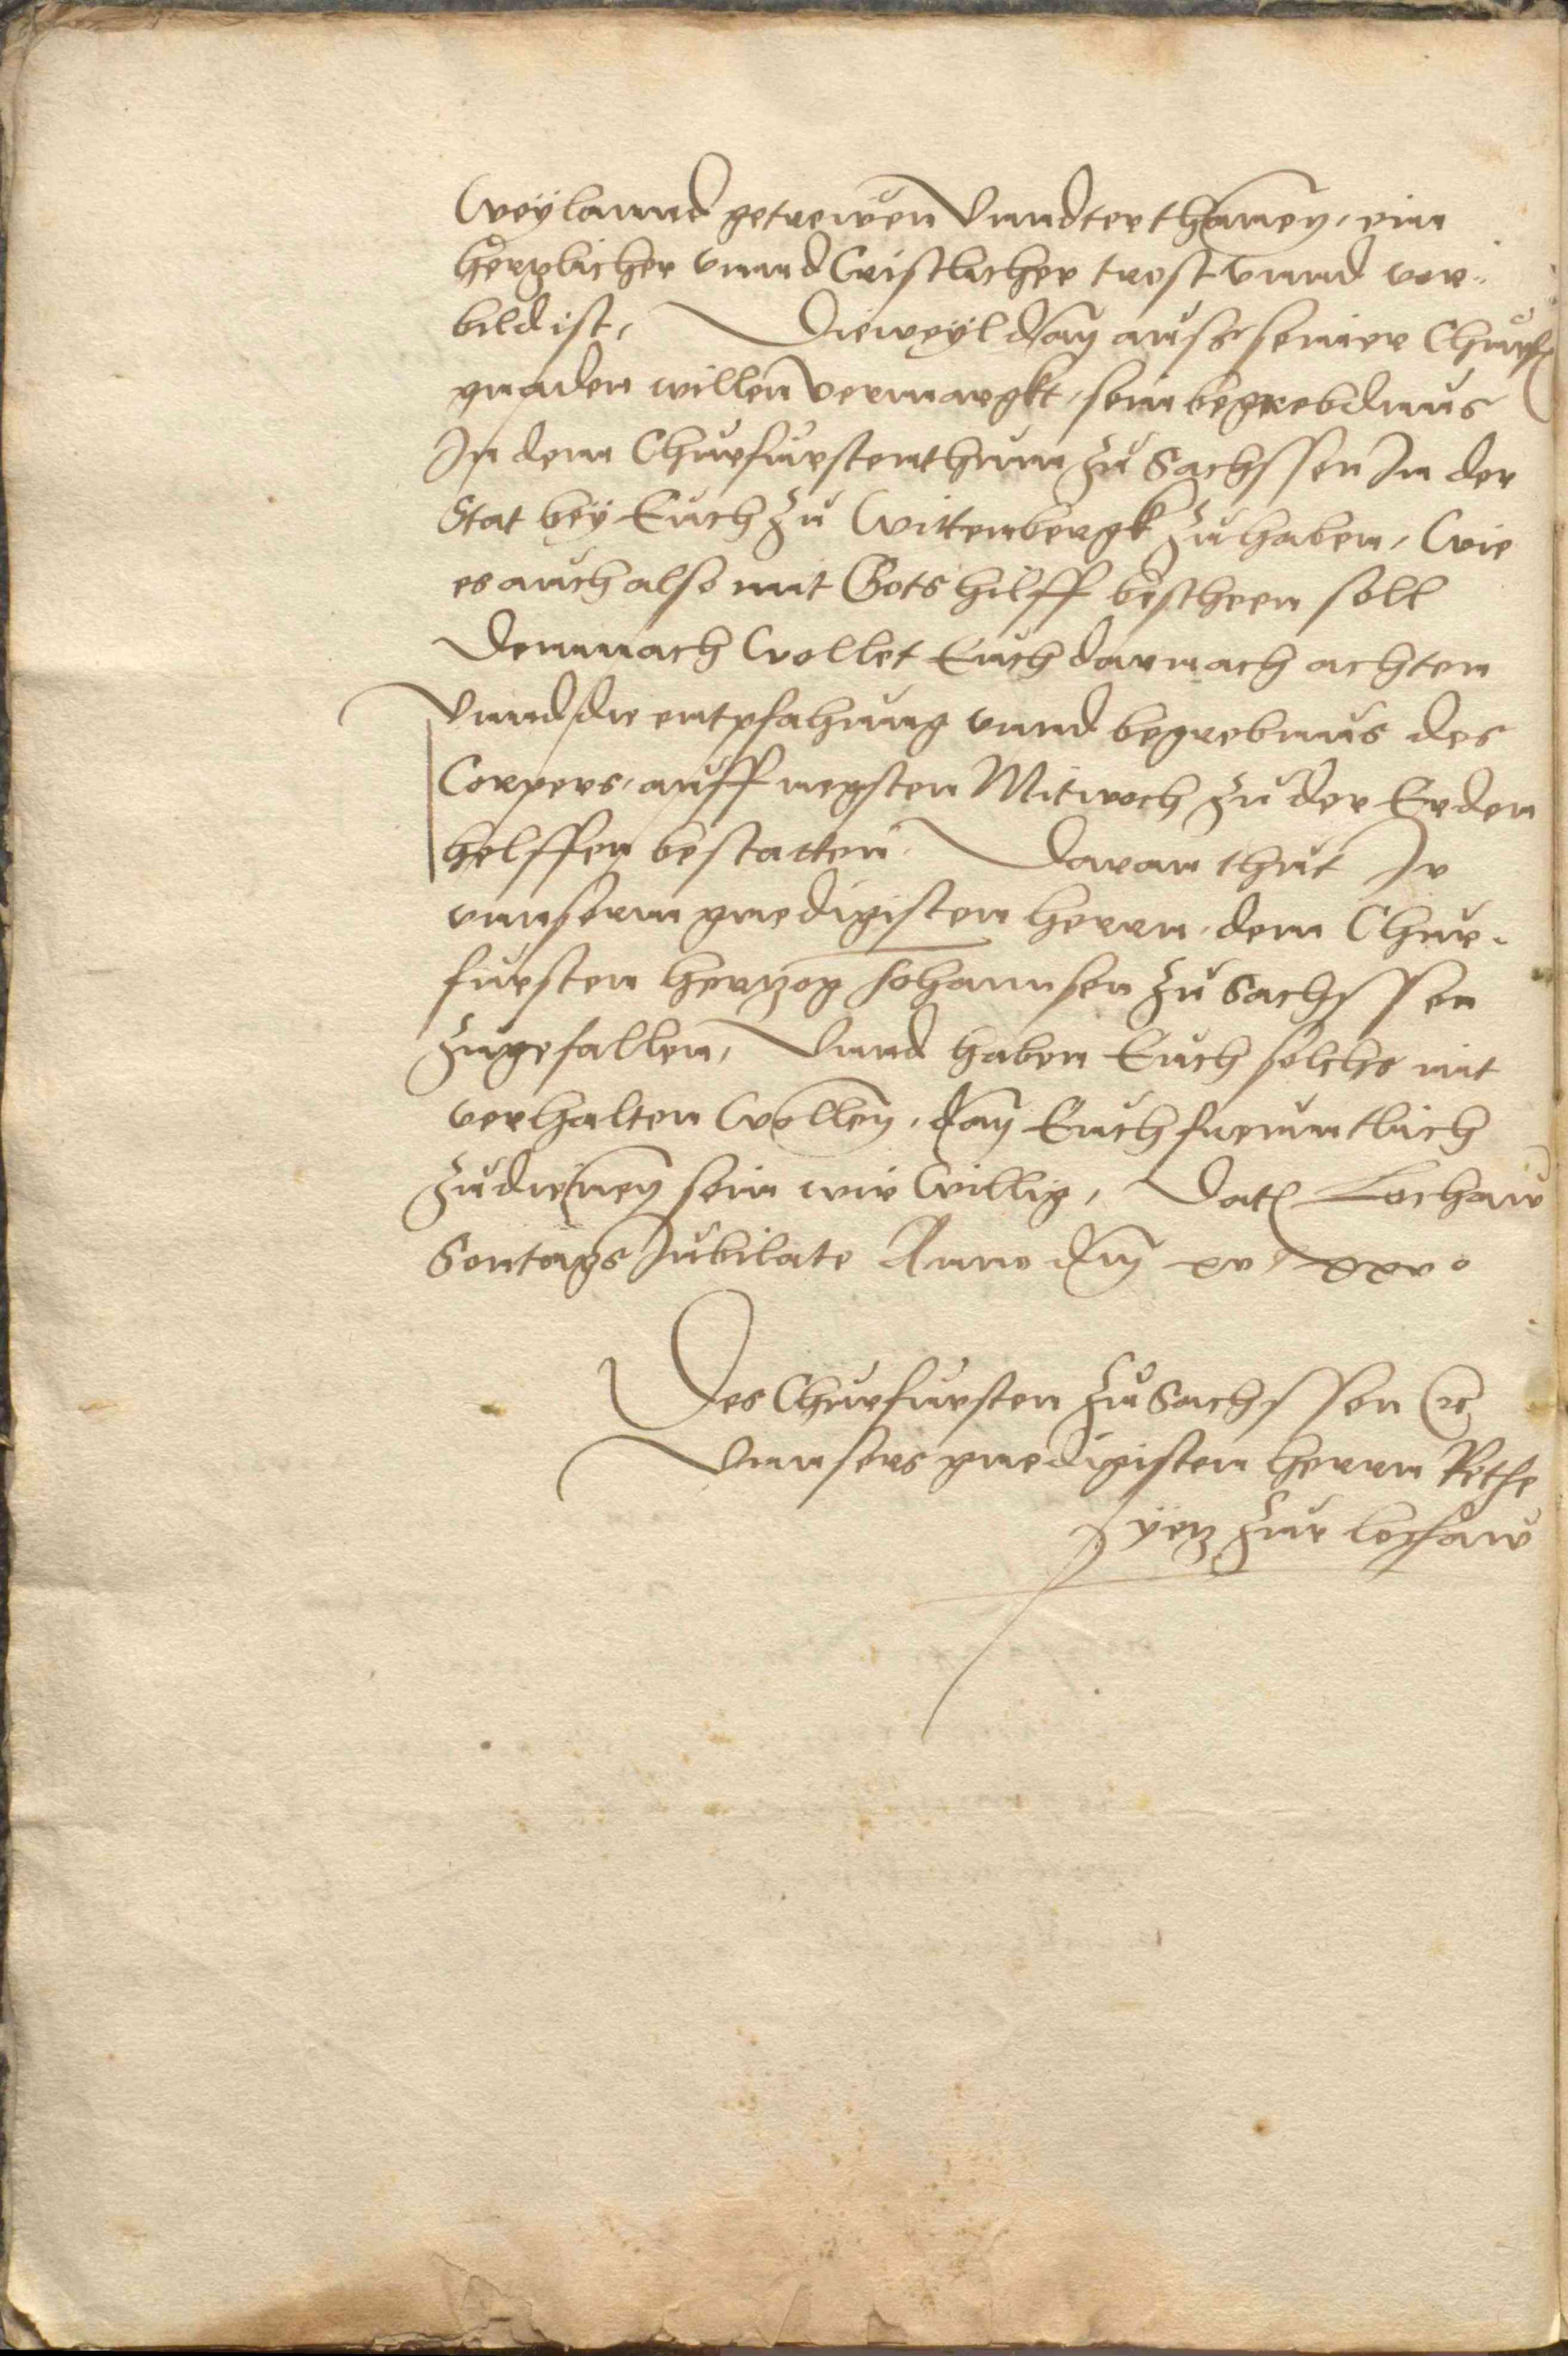 Weylannd getrewen Unndterthanen, ein
hertzlicher unnd Cristlicher trost unnd vor¬
bild ist, Dieweyl dan auss seiner Churf
gnaden willen vermargkt, sein begrebdnus
In dem Churfurstenthum zu Sachssen In der
Stat bey Euch zu Wittenbergk zu haben, Wie
es auch also mit Gots hilff bescheen soll
Demnach Wollet Euch darnach achten
Unnd die entpfahung unnd begrebnus des
Corpers, auff negsten Mitwoch zu der Erden
helffen bestatten. Daran thut Ir
unnserm gnedigisten herrn, dem Chur¬
fursten hertzog Johannsen zu Sachssen
zugefallen, Unnd haben Euch solchs nit
verhalten Wollen, dan Euch freuntlich
zu dienen sein wir Willig, Dat Lochaw
Sontags Jubilate Anno dni xv^c xxv^o
Des Churfursten zu Sachssen etc
Unnsers gnedigisten herrn Rethe
Iytz zur lochaw